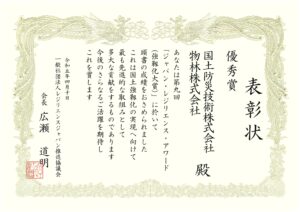 表彰状
優秀賞
国土防災技術株式会社
物林株式会社
殿
あなたは第九回
「ジャパン・レジリエンス・アワード
（強靱化大賞）」に於いて
頭書の成績をおさめられました
これは国土強靱化の実現へ向けて
最も先進的な取組みとして
多大な貢献をするものであります
今後のさらなるご活躍を期待し
これを賞します
令和五年四月十日
一般社団法人レジリエンスジャパン推進協議会
会長 広瀬 道明